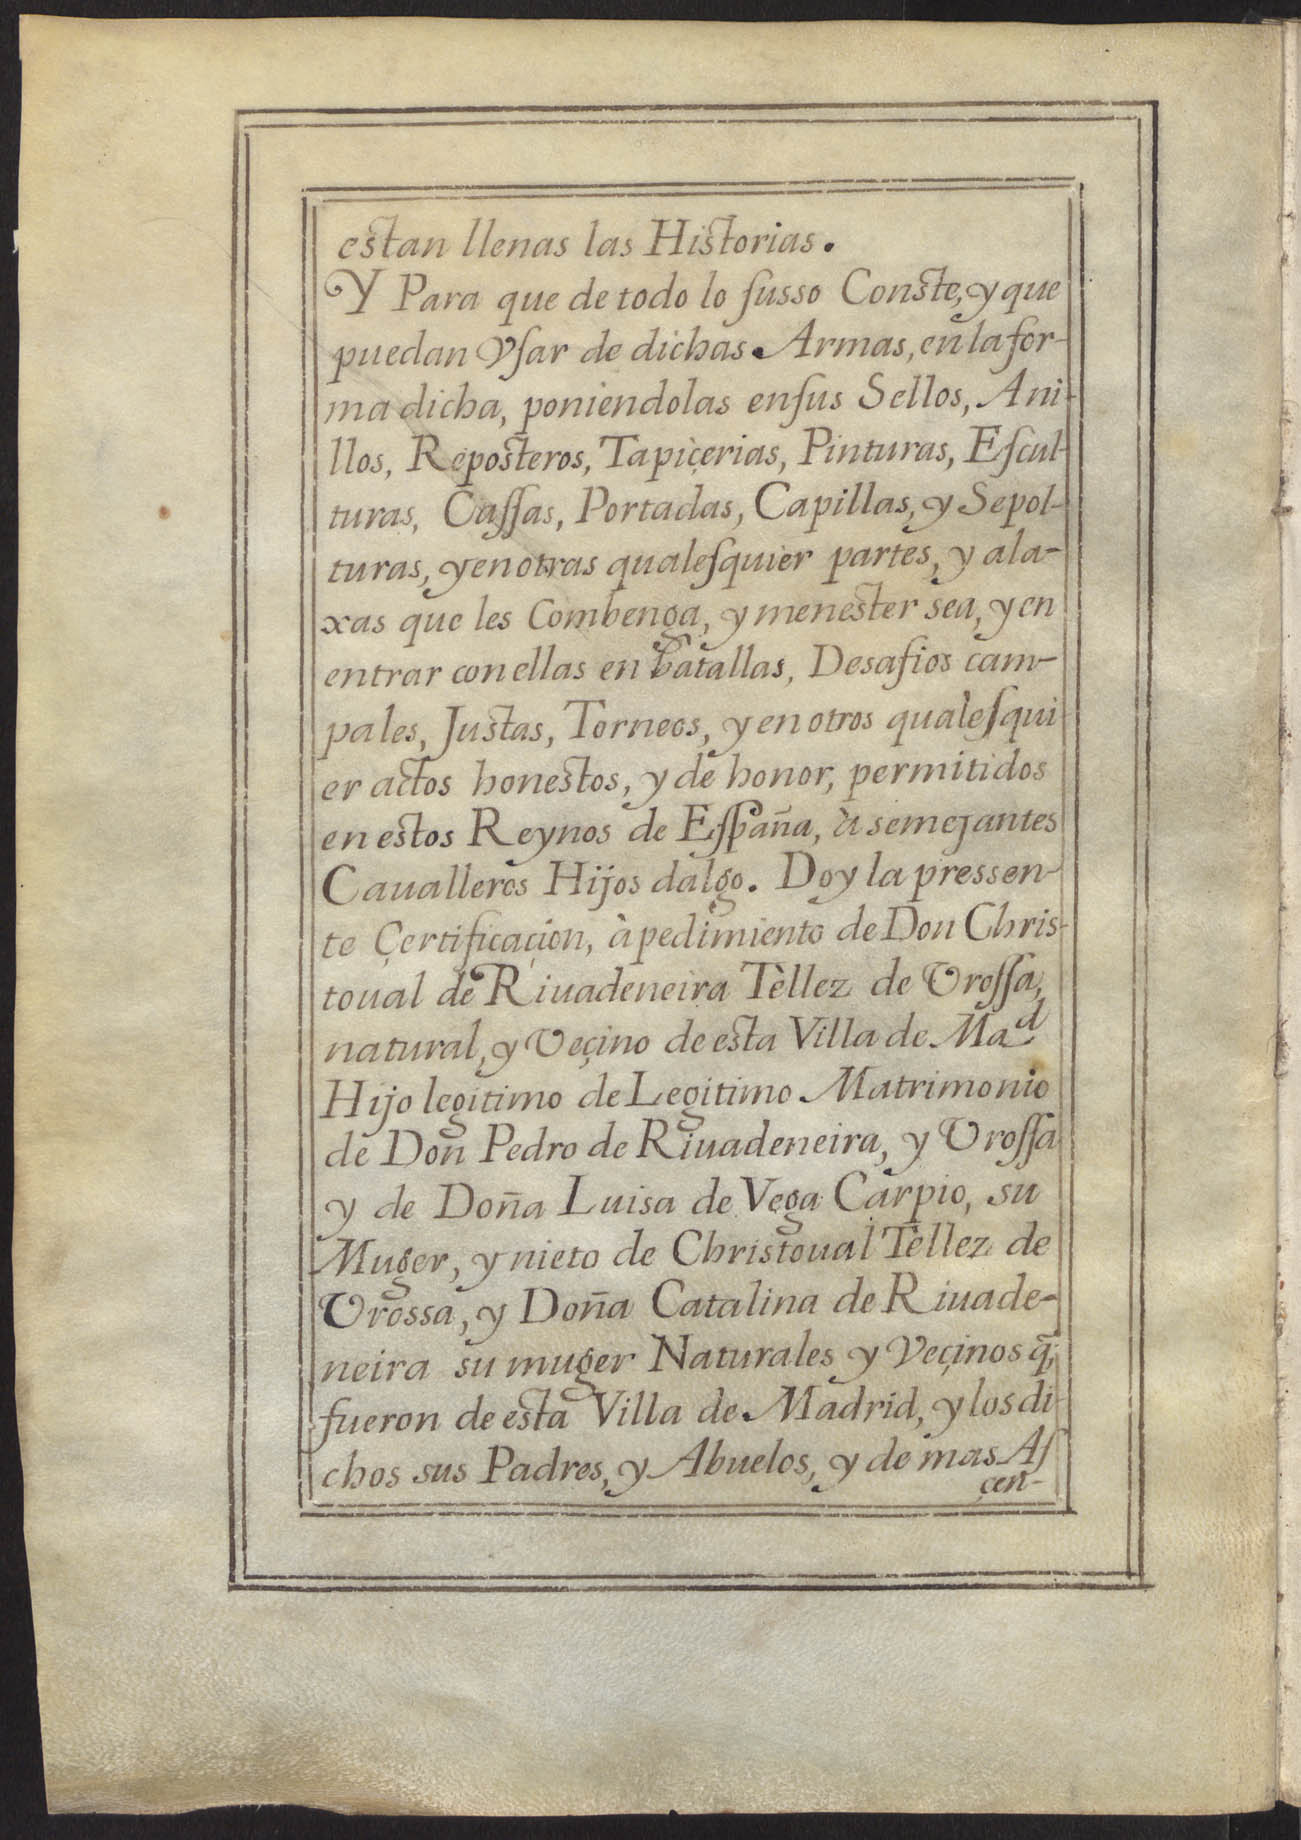 estan llenas las Historias.
Y Para que de todo lo ſusso Conste, y que
puedan Vſar de dichas Armas, en la for-
ma dicha, poniendolas en ſus Sellos, Ani-
llos, Reposteros, Tapiçerias, Pinturas, Eſcul-
turas, Caſſas, Portadas, Capillas, y Sepol-
turas, y en otras qualeſquier partes, y ala-
xas que les Combenga, y menester sea, y en
entrar con ellas en batallas, Desafios cam-
pales, Justas, Torneos, y en otros qualeſqui
er actos honestos, y de honor, permitidos
en estos Reynos de Eſpaña, à semejantes
Caualleros Hijos dalgo. Doy la pressen-
te Çertificaçion, à pedimiento de Don Chris-
toual de Riuadeneira Tèllez de Vroſſa,
natural, y Veçino de esta Villa de Mad
Hijo legitimo de Legitimo Matrimonio
de Don Pedro de Riuadeneira, y Vroſſa
y de Doña Luisa de Vega Carpio, su
Muger, y nieto de Christoual Tèllez de
Vrossa, y Doña Catalina de Riuade-
neira su muger Naturales y Veçinos q̃
fueron de esta Villa de Madrid, y los di-
chos sus Padres, y Abuelos, y de mas Aſ
çen-